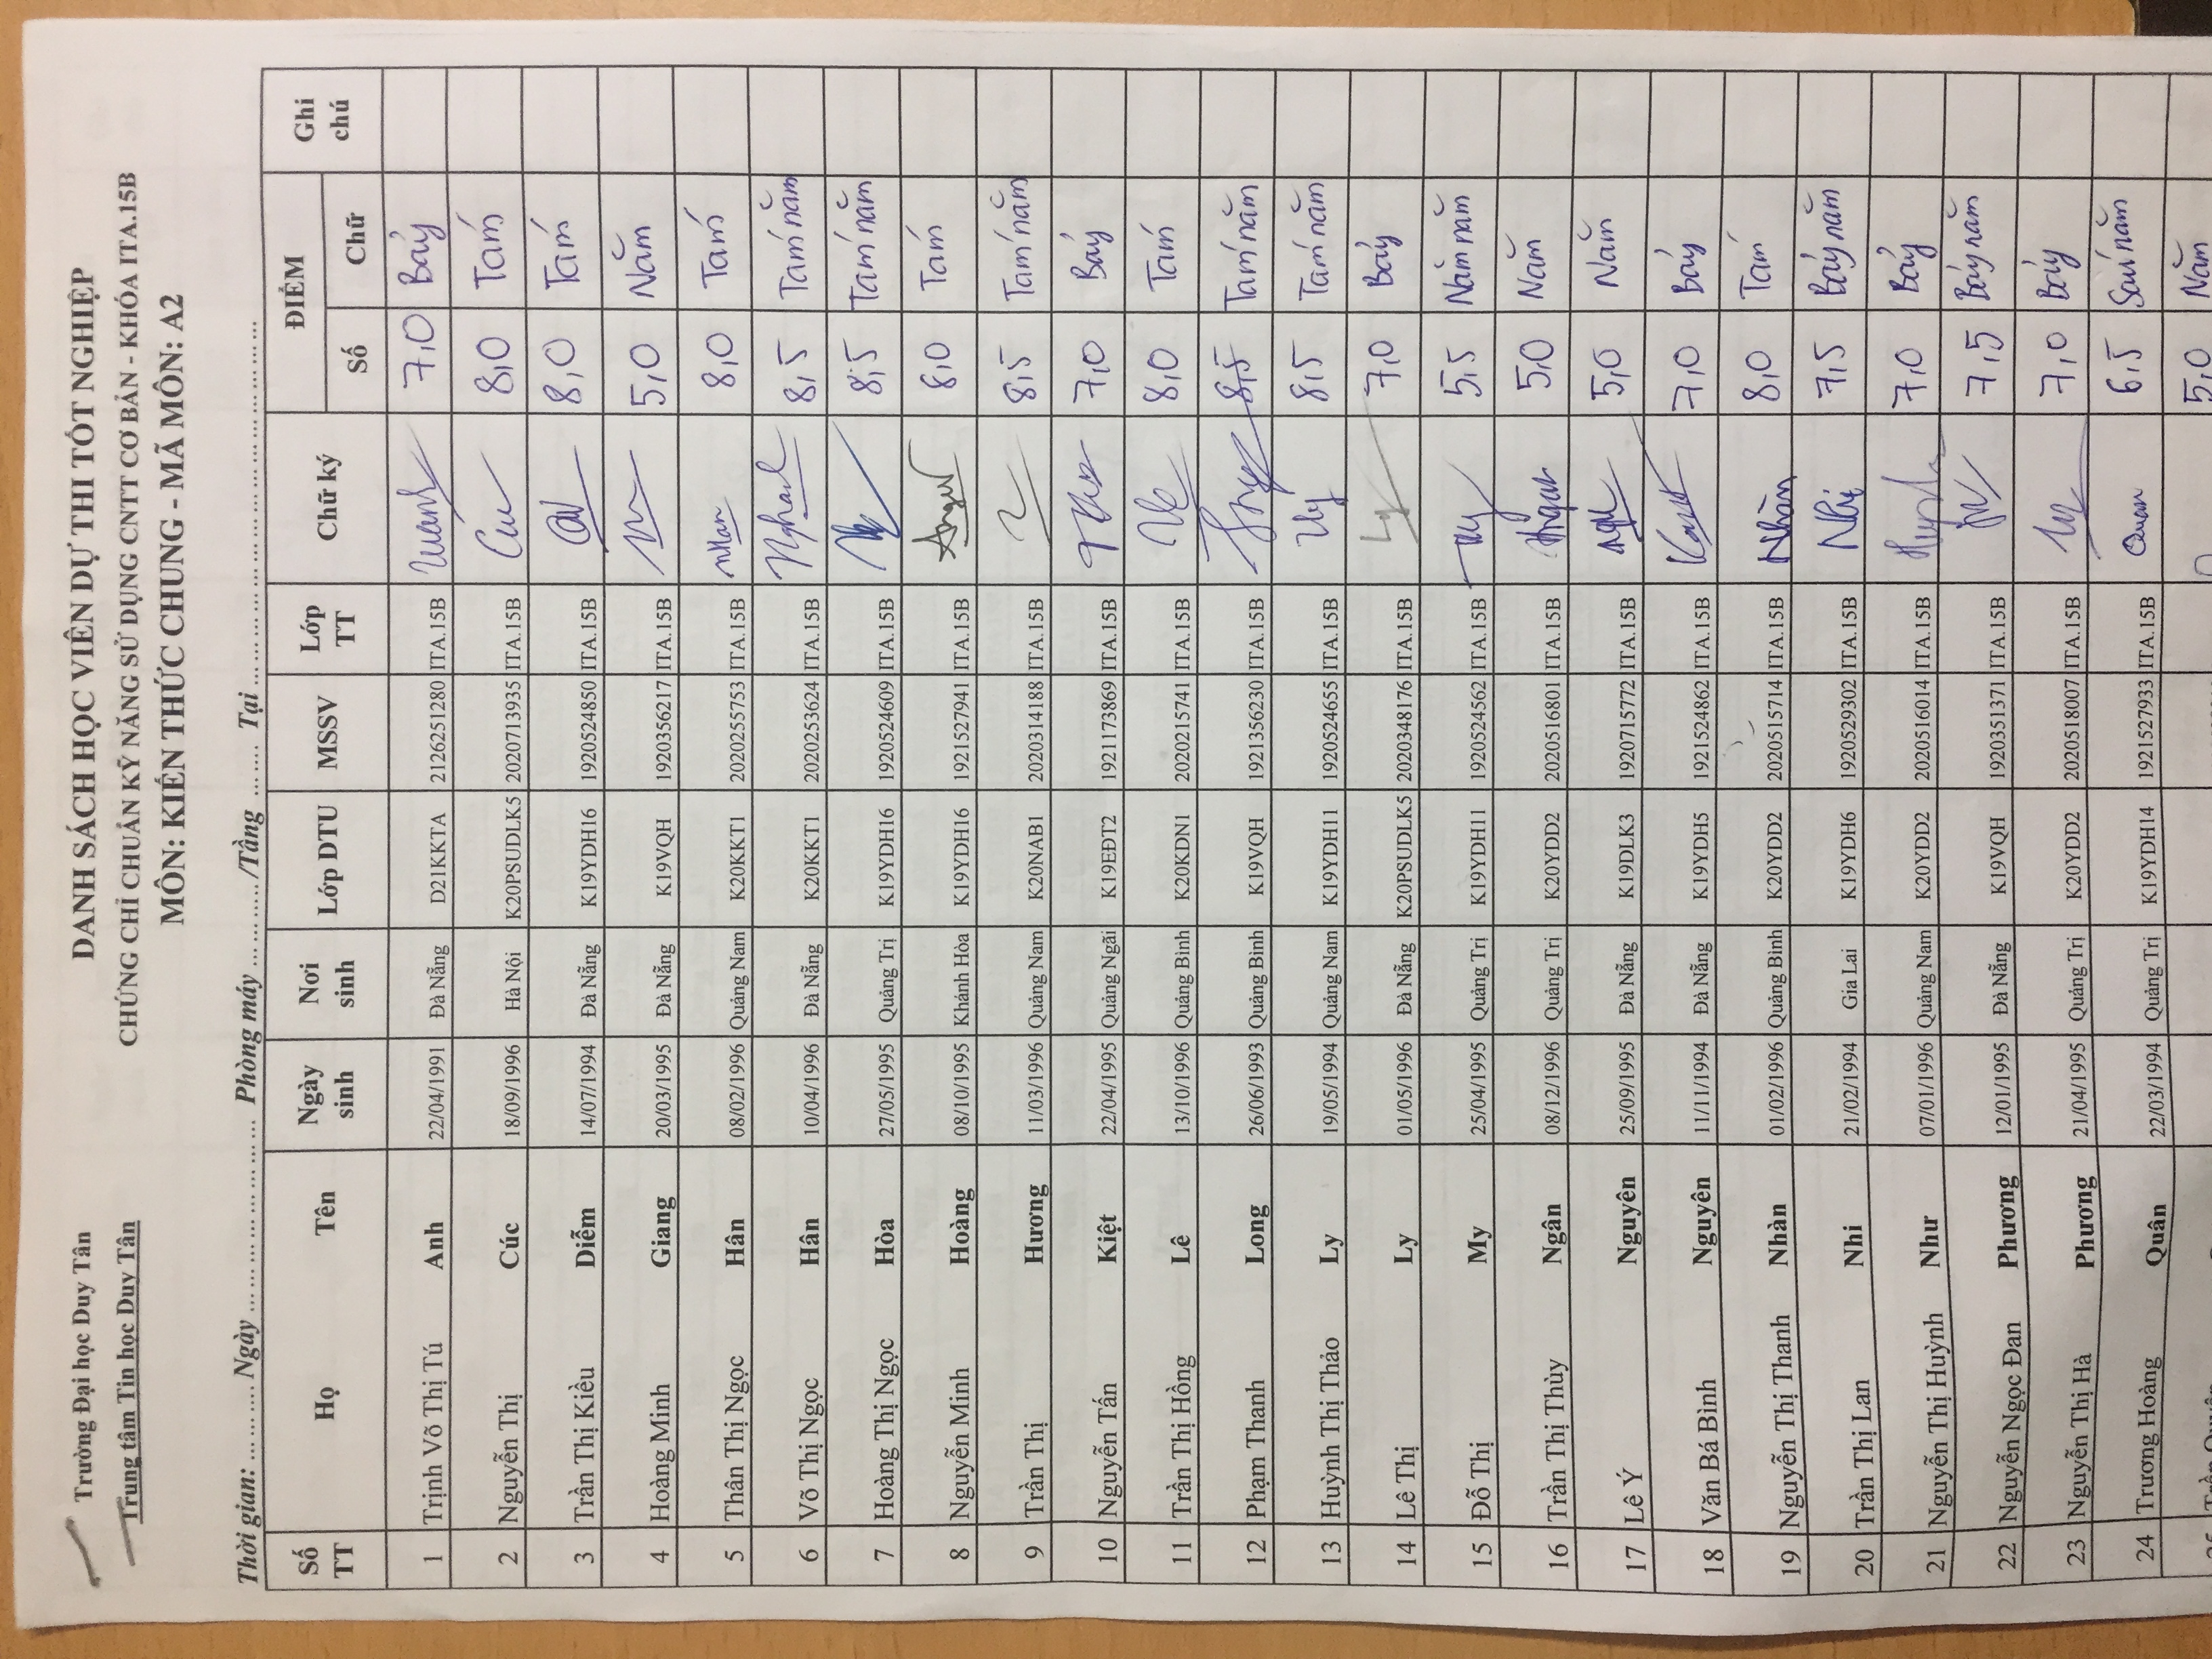 Trường Đại học Duy Tân
Trung tâm Tin học Duy Tân
DANH SÁCH HỌC VIÊN DỰ THI TỐT NGHIỆP
CHỨNG CHỈ CHUẨN KỸ NĂNG SỬ DỤNG CNTT CƠ BẢN - KHÓA ITA.15B
MÔN: KIẾN THỨC CHUNG - MÃ MÔN: A2
Thời gian: ... ... ... Ngày ... ... ... ... ... ... Phòng máy ... ... ... /Tầng ... ... ... Tại ... ... ... ... ... ... ... ... ... ... ... ...
Số TT Họ Tên Ngày sinh Nơi sinh Lớp DTU MSSV Lớp TT Chữ ký ĐIỂM Ghi chú
Số Chữ
1 Trịnh Võ Thị Tú Anh 22/04/1991 Đà Nẵng D21KKTA 2126251280 ITA.15B 7,0 Bảy
2 Nguyễn Thị Cúc 18/09/1996 Hà Nội K20PSUDLK5 2020713935 ITA.15B Cúc 8,0 Tám
3 Trần Thị Kiều Diễm 14/07/1994 Đà Nẵng K19YDH16 1920524850 ITA.15B 8,0 Tám
4 Hoàng Minh Giang 20/03/1995 Đà Nẵng K19VQH 1920356217 ITA.15B 5,0 Năm
5 Thân Thị Ngọc Hân 08/02/1996 Quảng Nam K20KKT1 2020255753 ITA.15B 8,0 Tám
6 Võ Thị Ngọc Hân 10/04/1996 Đà Nẵng K20KKT1 2020253624 ITA.15B 8,5 Tám năm
7 Hoàng Thị Ngọc Hòa 27/05/1995 Quảng Trị K19YDH16 1920524609 ITA.15B 8,5 Tám năm
8 Nguyễn Minh Hoàng 08/10/1995 Khánh Hòa K19YDH16 1921527941 ITA.15B 8,0 Tám
9 Trần Thị Hương 11/03/1996 Quảng Nam K20NAB1 2020314188 ITA.15B 8,5 Tám năm
10 Nguyễn Tấn Kiệt 22/04/1995 Quảng Ngãi K19EĐT2 1921173869 ITA.15B 7,0 Bảy
11 Trần Thị Hồng Lê 13/10/1996 Quảng Bình K20KDN1 2020215741 ITA.15B 8,0 Tám
12 Phạm Thanh Long 26/06/1993 Quảng Bình K19VQH 1921356230 ITA.15B 8,5 Tám năm
13 Huỳnh Thị Thảo Ly 19/05/1994 Quảng Nam K19YDH11 1920524655 ITA.15B Ly 8,5 Tám năm
14 Lê Thị Ly 01/05/1996 Đà Nẵng K20PSUDLK5 2020348176 ITA.15B Ly 7,0 Bảy
15 Đỗ Thị My 25/04/1995 Quảng Trị K19YDH11 1920524562 ITA.15B My 5,5 Năm năm
16 Trần Thị Thùy Ngân 08/12/1996 Quảng Trị K20YDD2 2020516801 ITA.15B Ngân 5,0 Năm
17 Lê Ý Nguyên 25/09/1995 Đà Nẵng K19DLK3 1920715772 ITA.15B 5,0 Năm
18 Văn Bá Bình Nguyên 11/11/1994 Đà Nẵng K19YDH5 1921524862 ITA.15B 7,0 Bảy
19 Nguyễn Thị Thanh Nhàn 01/02/1996 Quảng Bình K20YDD2 2020515714 ITA.15B Nhàn 8,0 Tám
20 Trần Thị Lan Nhi 21/02/1994 Gia Lai K19YDH6 1920529302 ITA.15B Nhi 7,5 Bảy năm
21 Nguyễn Thị Huỳnh Như 07/01/1996 Quảng Nam K20YDD2 2020516014 ITA.15B 7,0 Bảy
22 Nguyễn Ngọc Đan Phương 12/01/1995 Đà Nẵng K19VQH 1920351371 ITA.15B 7,5 Bảy năm
23 Nguyễn Thị Hà Phương 21/04/1995 Quảng Trị K20YDD2 2020518007 ITA.15B 7,0 Bảy
24 Trương Hoàng Quân 22/03/1994 Quảng Trị K19YDH14 1921527933 ITA.15B Quân 6,5 Sáu năm
5,0 Năm